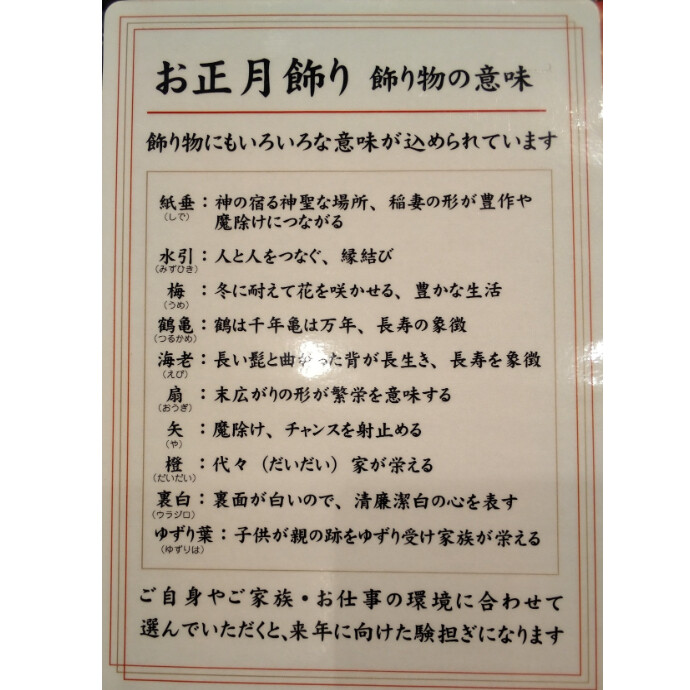 お正月飾り 飾り物の意味
飾り物にもいろいろな意味が込められています
紙垂：神の宿る神聖な場所、稲妻の形が豊作や
（しで）
魔除けにつながる
水引：人と人をつなぐ、縁結び
（みずひき）
梅：冬に耐えて花を咲かせる、豊かな生活
（うめ）
鶴亀：鶴は千年亀は万年、長寿の象徴
（つるかめ）
海老：長い髭と曲がった背が長生き、長寿を象徴
（えび）
扇：末広がりの形が繁栄を意味する
（おうぎ）
矢：魔除け、チャンスを射止める
（や）
橙：代々（だいだい）家が栄える
（だいだい）
裏白：裏面が白いので、清廉潔白の心を表す
（ウラジロ）
ゆずり葉：子供が親の跡をゆずり受け家族が栄える
（ゆずりは）
ご自身やご家族・お仕事の環境に合わせて
選んでいただくと、来年に向けた験担ぎになります